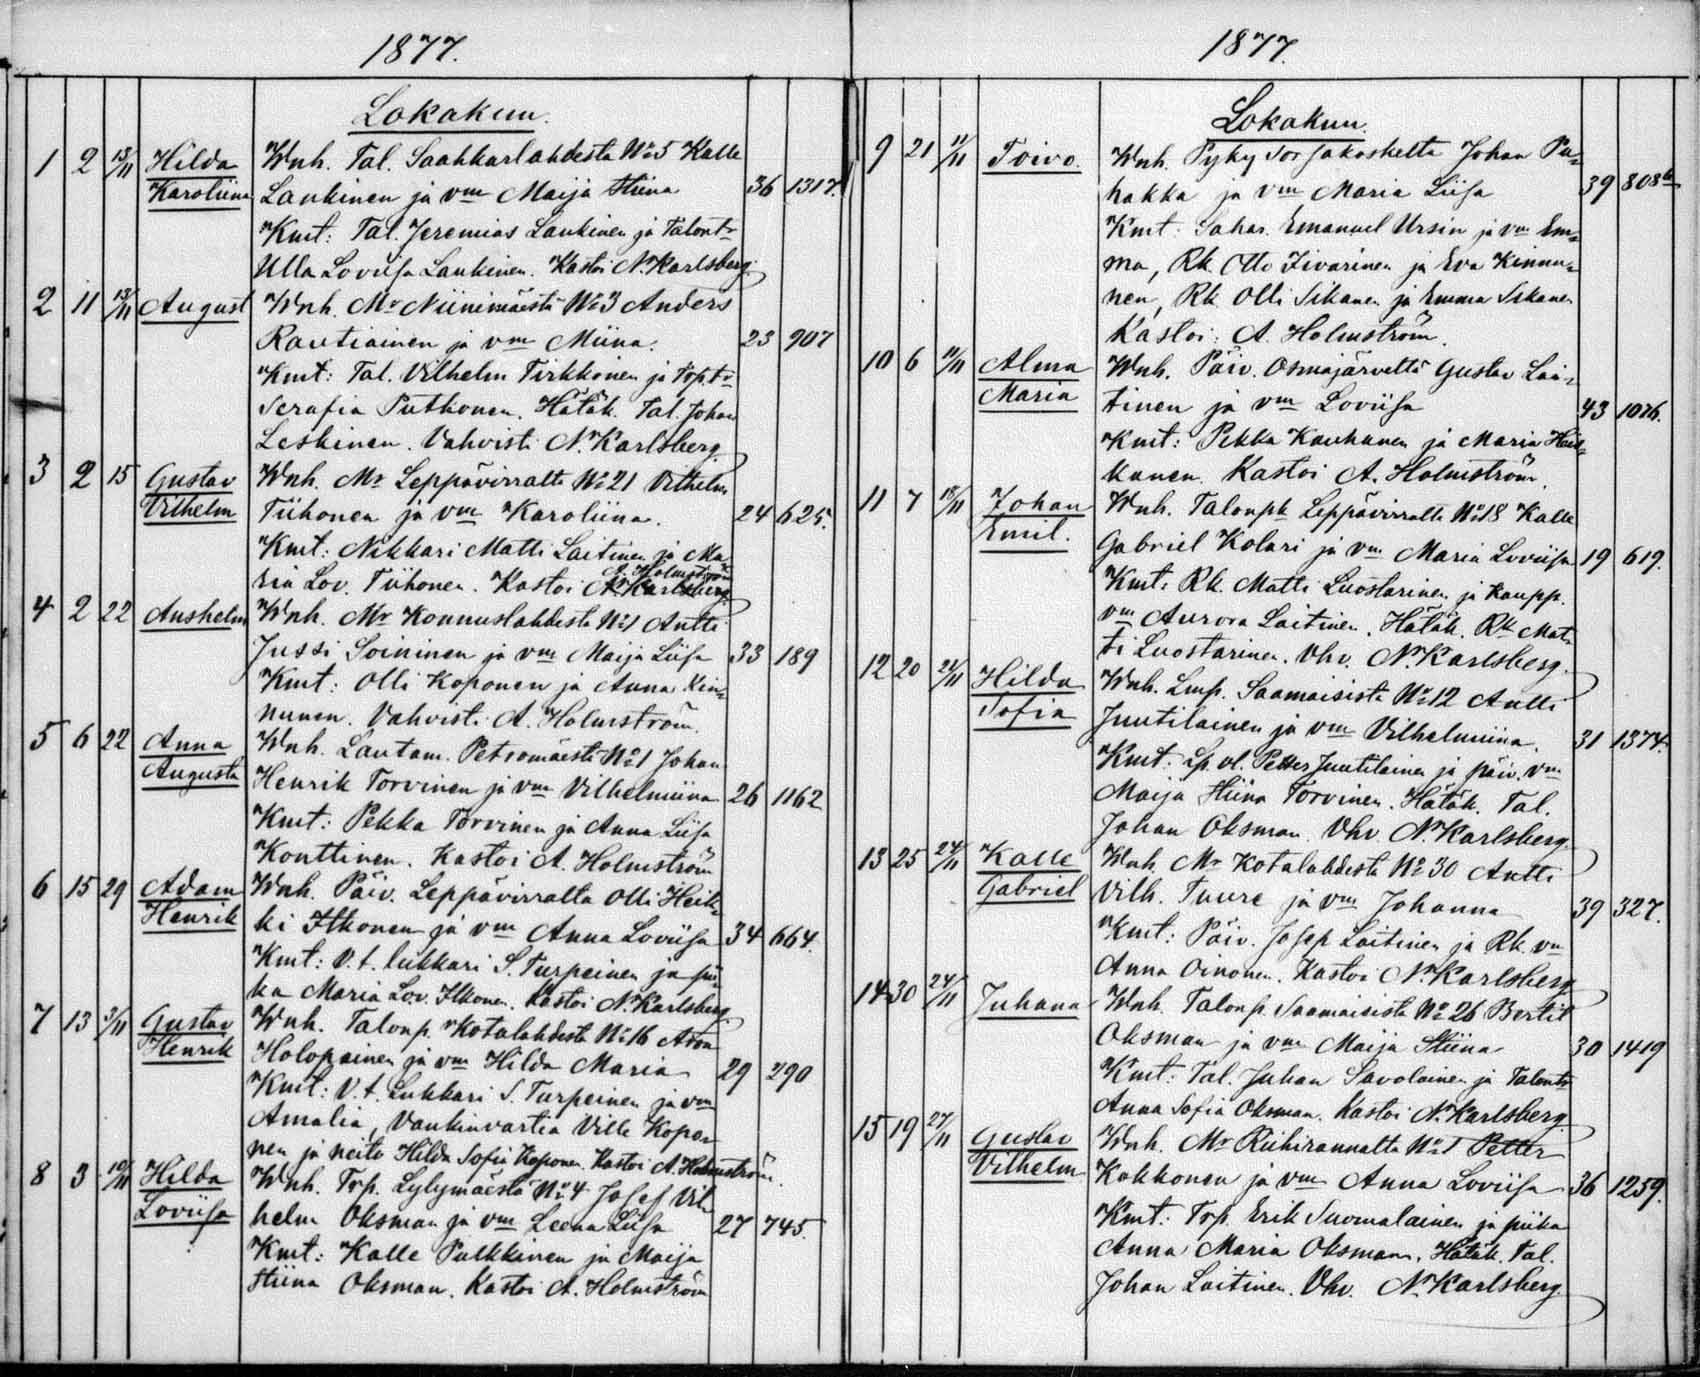 1877.
Lokakuu.
1 2 13/11 Hilda Wnh. Tal. Saahkarlahdesta No 5 Kalle
Karoliina Laukinen ja vm Maija Stiina 36 1317.
Kmt: Tal. Jeremias Laukinen ja Talont-
Ulla Lovisa Laukinen. Kastoi N. Karlsberg.
2 11 13/11 August Wnh. Mr Niinimäestä No 3 Anders
Rautiainen ja vm Miina. 23 907
Kmt: Tal. Vilhelm Tirkkonen ja
Serafia Putkonen. Hätäk. Tal. Johan
Leskinen. Vahvisti N. Karlsberg.
3 2 15 Gustav Wnh. Mr Leppävirralta No 21 Vilhelm
Vilhelm Tiihonen ja vm Karoliina. 24 625.
Kmt: Nikkari Matti Laitinen ja Ma-
A. Holmström
ria Lov. Tiihonen. Kastoi N. Karlsberg
4 2 22 Anshelm Wnh. Mr Konnuslahdesta No 1 Antti
Jussi Soininen ja vm Maija Liisa 33 189
Kmt: Olli Koponen ja Anna Kin-
nunen. Vahvisti A. Holmström.
5 6 22 Anna Wnh. Lautam. Petromäestä No 1 Johan
Augusta Henrik Torvinen ja vm Vilhelmiina 26 1162
Kmt: Pekka Torvinen ja Anna Liisa
Konttinen. Kastoi A. Holmström
6 15 29 Adam Wnh. Päiv. Leppävirralta Olli Heik-
Henrik ki Itkonen ja vm Anna Loviisa 34 664.
Kmt: V. t. lukkari S. Turpeinen ja pii-
ka Maria Lov. Itkonen. Kastoi N. Karlsberg
7 13 3/11 Gustav Wnh. Talonp. Kotalahdesta No 16 Adam
Henrik Holopainen ja vm Hilda Maria 29 290
Kmt: V. t. Lukkari S. Turpeinen ja vm
Amalia, Vankinvartia Ville Kopo-
nen ja neito Hilda Sofia Koponen. Kastoi A. Holmström.
8 3 10/11 Hilda Wnh. Trp. Lylymäestä No 4 Josef Vil-
Loviisa helm Oksman ja vm Leena Liisa 27 745.
Kmt: Kalle Pulkkinen ja Maija
Stiina Oksman. Kastoi A. Holmström
1877.
Lokakuu.
9 21 11/11 Toivo. Wnh. Pyky Sorsakoskelta Johan Pu-
hakka ja vm Maria Liisa 39 808
Kmt: Sahar. Emanuel Ursin ja vm Em-
ma, Rk. Otto Iivarinen ja Eva Kinnu-
nen, Rk Olli Sikanen ja Emma Sikanen
Kastoi: A. Holmström.
10 6 11/11 Alma Wnh. Päiv. Osmajärveltä Gustav Lai-
Maria tinen ja vm Loviisa 43 1076.
Kmt: Pekka Kauhanen ja Maria
kanen. Kastoi A. Holmström.
11 7 18/11 Johan Wnh. Talonpk Leppävirralta No 18 Kalle
Emil. Gabriel Kolari ja vm Maria Loviisa 19 619.
Kmt: Rk. Matti Luostarinen ja Kaupp.
vm Aurora Laitinen. Hätäk. Rk Mat-
ti Luostarinen. Vhv. N. Karlsberg.
12 20 24/11 Hilda Wnh. Lmp. Saamaisista No 12 Antti
Sofia Juutilainen ja vm Vilhelmiina. 31 1374.
Kmt: Lp. vl. Petter Juutilainen ja päiv. vm
Maija Stiina Torvinen. Hätäk. Tal.
Johan Oksman. Vhv. N. Karlsberg.
13 25 24/11 Kalle Wnh. Mr Kotalahdesta No 30 Antti
Gabriel Vilh. Tuure ja vm Johanna 39 327.
Kmt: Päiv. Josep Laitinen ja Rk. vm
Anna Oinonen. Kastoi N. Karlsberg
14 30 24/11 Juhana Wnh. Talonp. Saamaisista No 26 Bertil
Oksman ja vm Maija Stiina 30 1419
Kmt: Tal. Juhan Savolainen ja Talont-
Anna Sofia Oksman. Kastoi N. Karlsberg
15 19 27/11 Gustav Wnh. Mr Riihirannalta No 1 Petter
Vilhelm Kokkonen ja vm Anna Loviisa 36 1259.
Kmt: Trp. Erik Suomalainen ja piika
Anna Maria Oksman. Hätäk. Tal.
Johan Laitinen. Vhv. N. Karlsberg.